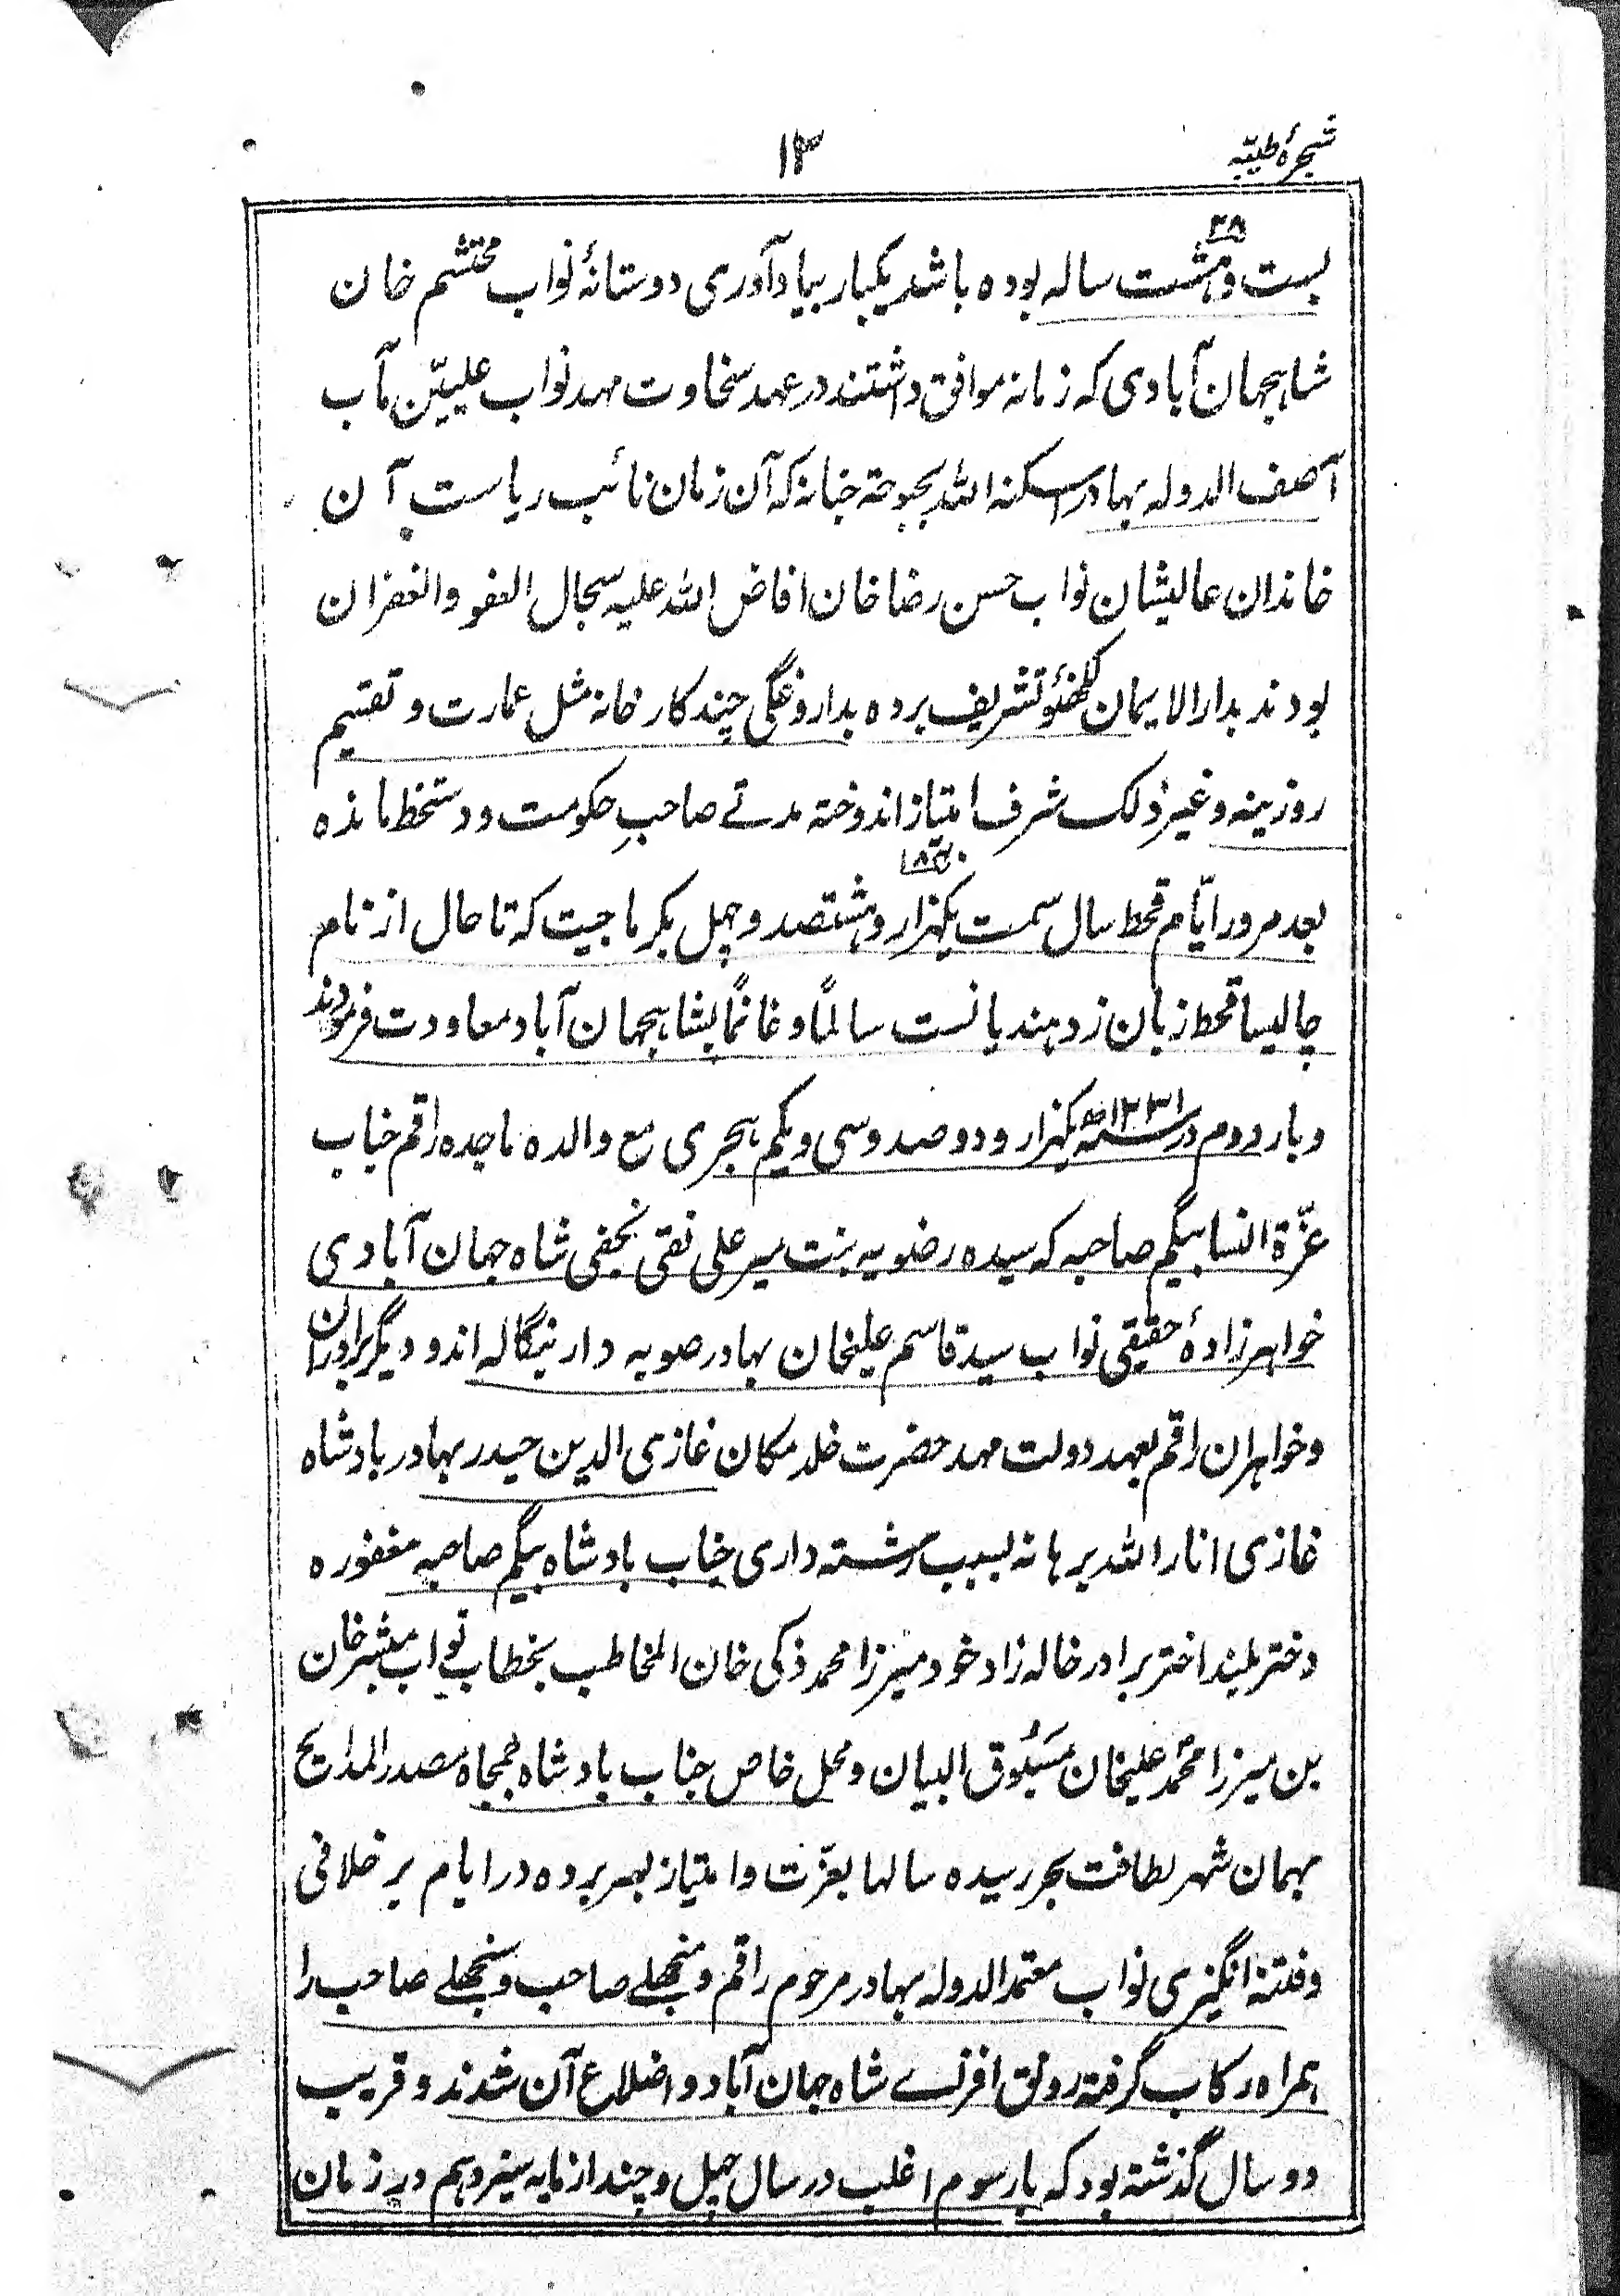 شجرۂ طیبّہ
۱۳
۲۸
بست و ہشت سالہ بودہ باشد یکبار بیاد آوری دوستانۂ نواب محتشم خان
شاہجہان آبادی کہ زمانہ موافق داشتند در عہد سخاوت مہد نواب علییّن مآب
آصف الدولہ بہادر اسکنہ اللہ بحبوحتہ جنانہ کہ آن زمان نائب ریاست آن
خاندان عالیشان نواب حسن رضا خان افاض اللہ علیہ سجال العفو والغفران
بودند بدارالایمان لکھنؤ تشریف بردہ بداروغگی چند کارخانہ مثل عمارت و تقسیم
روزینہ و غیر ذلک شرف امتیاز اندوختہ مدتے صاحبِ حکومت و دستخط ماندہ
۱۸۴۰
بعد مرور ایّام قحط سال سمت یکہزار و ہشتصد و چہل بکرماجیت کہ تا حال از نام
چالیسا قحط زبان زد ہندیانست سالمًا و غانمًا بشاہجہان آباد معاودت فرمودند
و بار دوم در سنہ ۱۲۳۱ یکہزار و دو صد و سی و یکم ہجری مع والدہ ماجدہ راقم جناب
عزّۃ النسا بیگم صاحبہ کہ سیدہ رضویہ بنت میر علی نقی نجفی شاہ جہان آبادی
خواہر زادۂ حقیقی نواب سید قاسم علیخان بہادر صوبہ دار بنگالہ اند و دیگر برادران
و خواہران راقم بعہد دولت مہد حضرت خلد مکان غازی الدین حیدر بہادر بادشاہ
غازی انار اللہ برہانہ بسبب رشتہ داری جناب بادشاہ بیگم صاحبہ مغفورہ
دختر بلند اختر برادر خالہ زاد خود میرزا محمد ذکی خان المخاطب بخطاب نواب مبشر خان
بن میرزا محمّد علیخان مسبُوق البیان و محل خاص جناب بادشاہ جمجاہ مصدر المدایح
بہمان شہر لطافت بحر رسیدہ سالہا بعزّت و امتیاز بسر بردہ در ایام بر خلافی
و فتنہ انگیزی نواب معتمد الدولہ بہادر مرحوم راقم و منجھلے صاحب و سنجھلے صاحب را
ہمراہ رکاب گرفتہ رونق افزاے شاہ جہان آباد و اضلاع آن شدند و قریب
دو سال گذشتہ بود کہ بار سوم اغلب در سال چہل و چند از مایہ سیزدہم در زمان